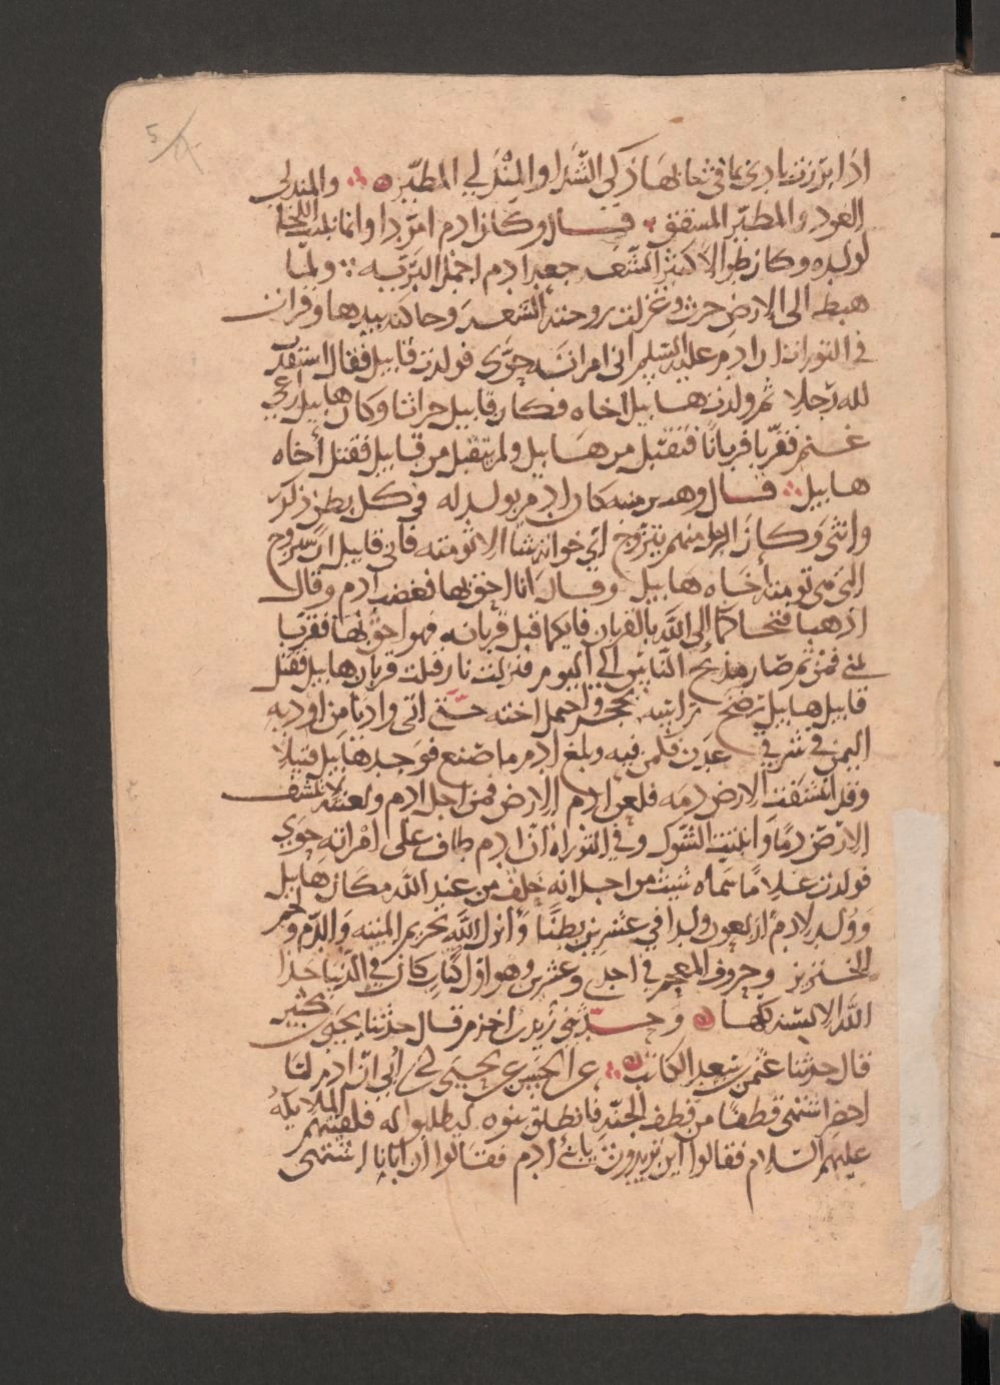 5
اذا برزت نادى بما في ثيابها ذكي الشذا والمندلي المطير والمندلي
العود والمطير المشقق قال وكان ادم امرد وانما نبتت اللحا
لولده وكان طوالا كثير الشعر جعدا ادم اجمل البرية ولما
هبط الى الارض حرث وغزلت زوجته الشعر وحاكته بيدها وقرات
في التوراة ان ادم عليه السلم اتى امراته حوى فولدت قابيل فقال استفدت
لله رجلا ثم ولدت هابيل اخاه فكان قابيل حراثا وكان هابيل راعي
غنم فقربا قربانا فتقبل من هابيل ولم يتقبل من قابيل فقتل أخاه
هابيل قال وهب بن منبه كان ادم يولد له في كل بطن ذكر
وانثى وكان الرجل منهم يتزوج اي خواته شا الا تومته فابى قابيل ان يتزوج
التي هي تومته أخاه هابيل وقال انا احق بها فغضب ادم وقال
اذهبا فتحاكما إلى الله بالقربان فايكما قبل قربانه فهو احق بها فقربا
بمنى فمن ثم صار مذبح الناس الى اليوم فنزلت نار قبلت قربان هابيل فقتل
قابيل هابيل رضخ راسه بحجر واحتمل اخته حتى اتى واديا من اودية
اليمن في شرقي عدن فكمن فيه وبلغ ادم ما صنع فوجد هابيل قتيلا
وقد انتشفت الارض دمه فلعن ادم الارض فمن اجل ادم ولعنته لا تنشف
الارض دما وانبتت الشوك وفي التوراة ان ادم طاف على امراته حوى
فولدت غلاما سماه شيث من اجل انه خلف من عند الله مكان هابيل
وولد لادم اربعون ولدا في عشرين بطنا وانزل الله تحريم الميتة والدم ولحم
الخنزير وحروف المعجم في احدى وعشرين وهو اول كتاب كان في الدنيا حذا
الله الالسنة كلها وحدثني زيد بن اخزم قال حدثنا يحيى بن كثير
قال حدثنا عثمن بن سعد الكاتب عن الحسن عن يحيى عن أبي ان ادم لما
احضر اشتهى قطفا من قطف الجنة فانطلق بنوه ليطلبوا له فلقيتهم الملايكة
عليهم السلام فقالوا اين تريدون يا بني ادم فقالوا ان ابانا اشتهى